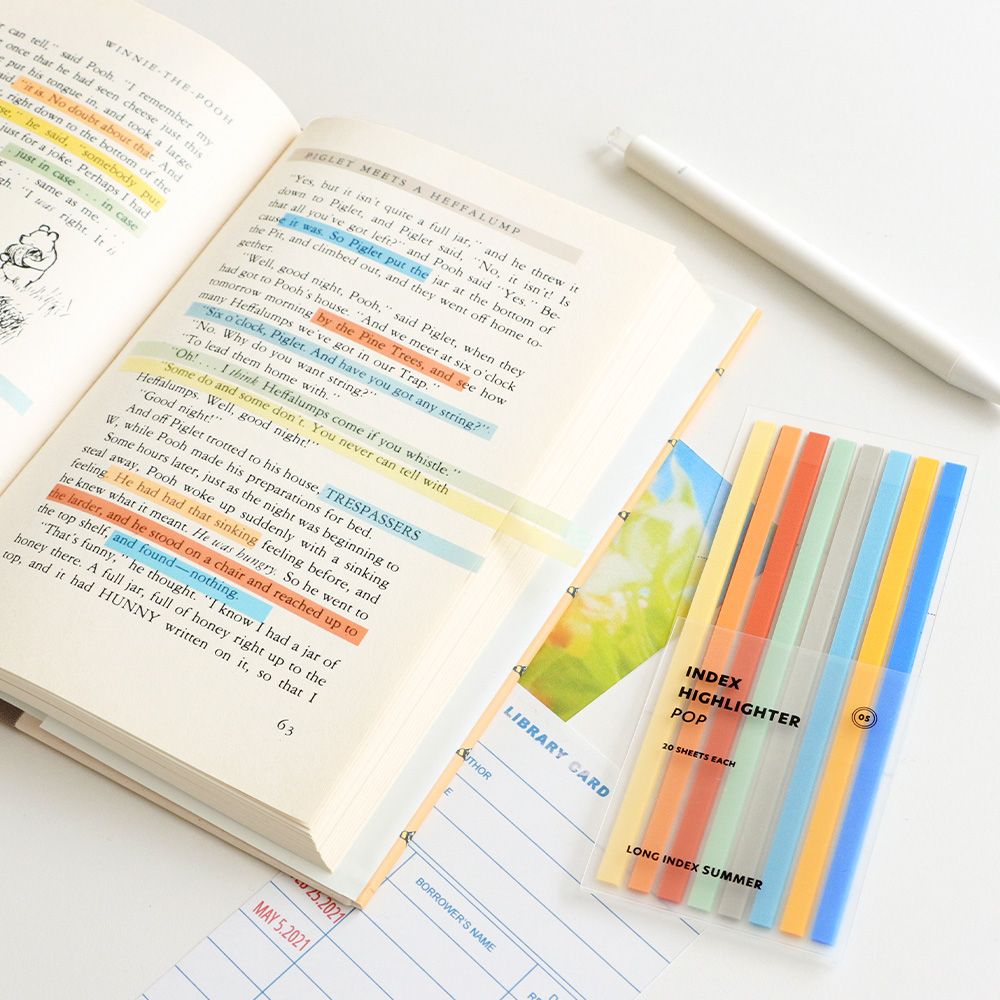 WINNIE-THE-POOH
can tell," said Pooh. "I remember my
once that he had seen cheese just this
put his tongue in, and took a large
"it is. No doubt about that. And
right down to the bottom of the
he said, "somebody put
just for a joke. Perhaps I had
. just in case . . . in case
. . . same as me,
"I was right. It is
PIGLET MEETS A HEFFALUMP
"Yes, but it isn't quite a full jar," and he threw it
down to Piglet, and Piglet said, "No, it isn't! Is
that all you've got left?" and Pooh said "Yes." Be-
cause it was. So Piglet put the jar at the bottom of
the Pit, and climbed out, and they went off home to-
gether.
"Well, good night, Pooh," said Piglet, when they
had got to Pooh's house. "And we meet at six o'clock
tomorrow morning by the Pine Trees, and see how
many Heffalumps we've got in our Trap."
"Six o'clock, Piglet. And have you got any string?"
"No. Why do you want string?"
"To lead them home with."
"Oh! . . . I think Heffalumps come if you whistle."
"Some do and some don't. You never can tell with
Heffalumps. Well, good night!"
"Good night!"
And off Piglet trotted to his house TRESPASSERS
W, while Pooh made his preparations for bed.
Some hours later, just as the night was beginning to
steal away, Pooh woke up suddenly with a sinking
feeling. He had had that sinking feeling before, and
he knew what it meant. He was hungry. So he went to
the larder, and he stood on a chair and reached up to
the top shelf, and found—nothing.
"That's funny," he thought. "I know I had a jar of
honey there. A full jar, full of honey right up to the
top, and it had HUNNY written on it, so that I
63
LIBRARY CARD
BORROWER'S NAME
MAY 5.2021
INDEX
HIGHLIGHTER
POP
05
20 SHEETS EACH
LONG INDEX SUMMER